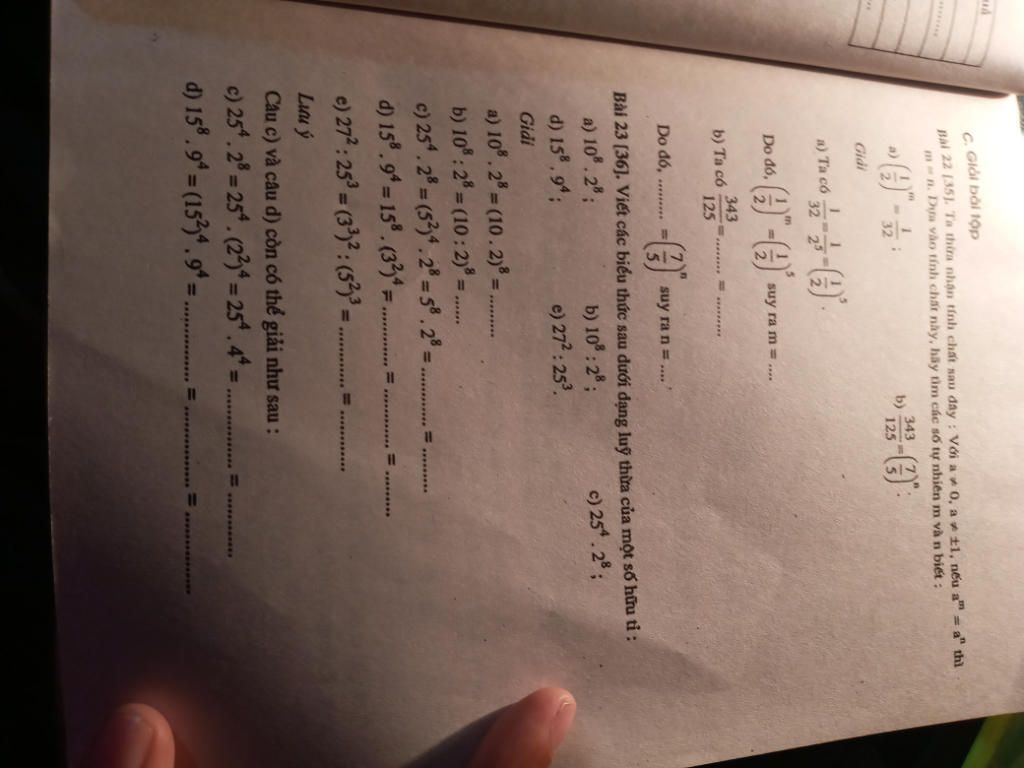 C. Giải bài tập
Bài 22 [35]. Ta thừa nhận tính chất sau đây : Với a ≠ 0, a ≠ ±1, nếu aᵐ = aⁿ thì
m = n. Dựa vào tính chất này, hãy tìm các số tự nhiên m và n biết :
a) (1/2)ᵐ = 1/32 ; b) 343/125 = (7/5)ⁿ.
Giải
a) Ta có 1/32 = 1/2⁵ = (1/2)⁵.
Do đó, (1/2)ᵐ = (1/2)⁵ suy ra m = ....
b) Ta có 343/125 = ......... = ..........
Do đó, ......... = (7/5)ⁿ suy ra n = ....
Bài 23 [36]. Viết các biểu thức sau dưới dạng luỹ thừa của một số hữu tỉ :
a) 10⁸ . 2⁸ ; b) 10⁸ : 2⁸ ; c) 25⁴ . 2⁸ ;
d) 15⁸ . 9⁴ ; e) 27² : 25³.
Giải
a) 10⁸ . 2⁸ = (10 . 2)⁸ = .........
b) 10⁸ : 2⁸ = (10 : 2)⁸ = ......
c) 25⁴ . 2⁸ = (5²)⁴ . 2⁸ = 5⁸ . 2⁸ = ............ = .........
d) 15⁸ . 9⁴ = 15⁸ . (3²)⁴ = ............ = ............ = .........
e) 27² : 25³ = (3³)² : (5²)³ = ............ = ............
Lưu ý
Câu c) và câu d) còn có thể giải như sau :
c) 25⁴ . 2⁸ = 25⁴ . (2²)⁴ = 25⁴ . 4⁴ = ............... = ...............
d) 15⁸ . 9⁴ = (15²)⁴ . 9⁴ = ............... = ............... = ...............